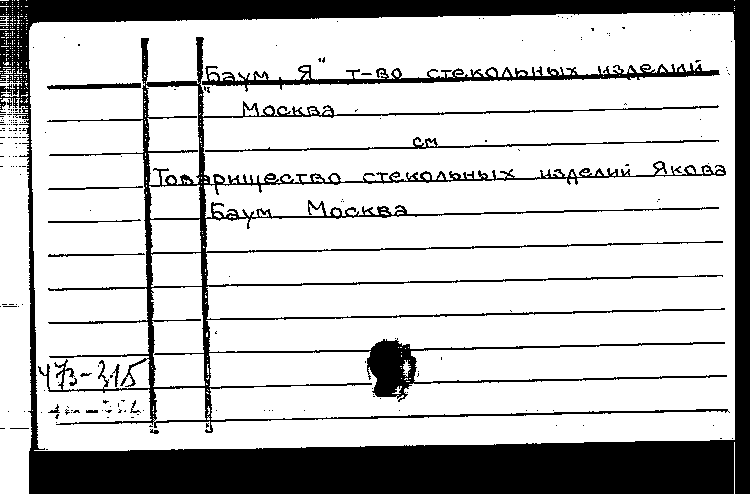 "Баум, Я" т-во стекольных изделий
Москва
см
Товарищество стекольных изделий Якова
Баум. Москва
473-315